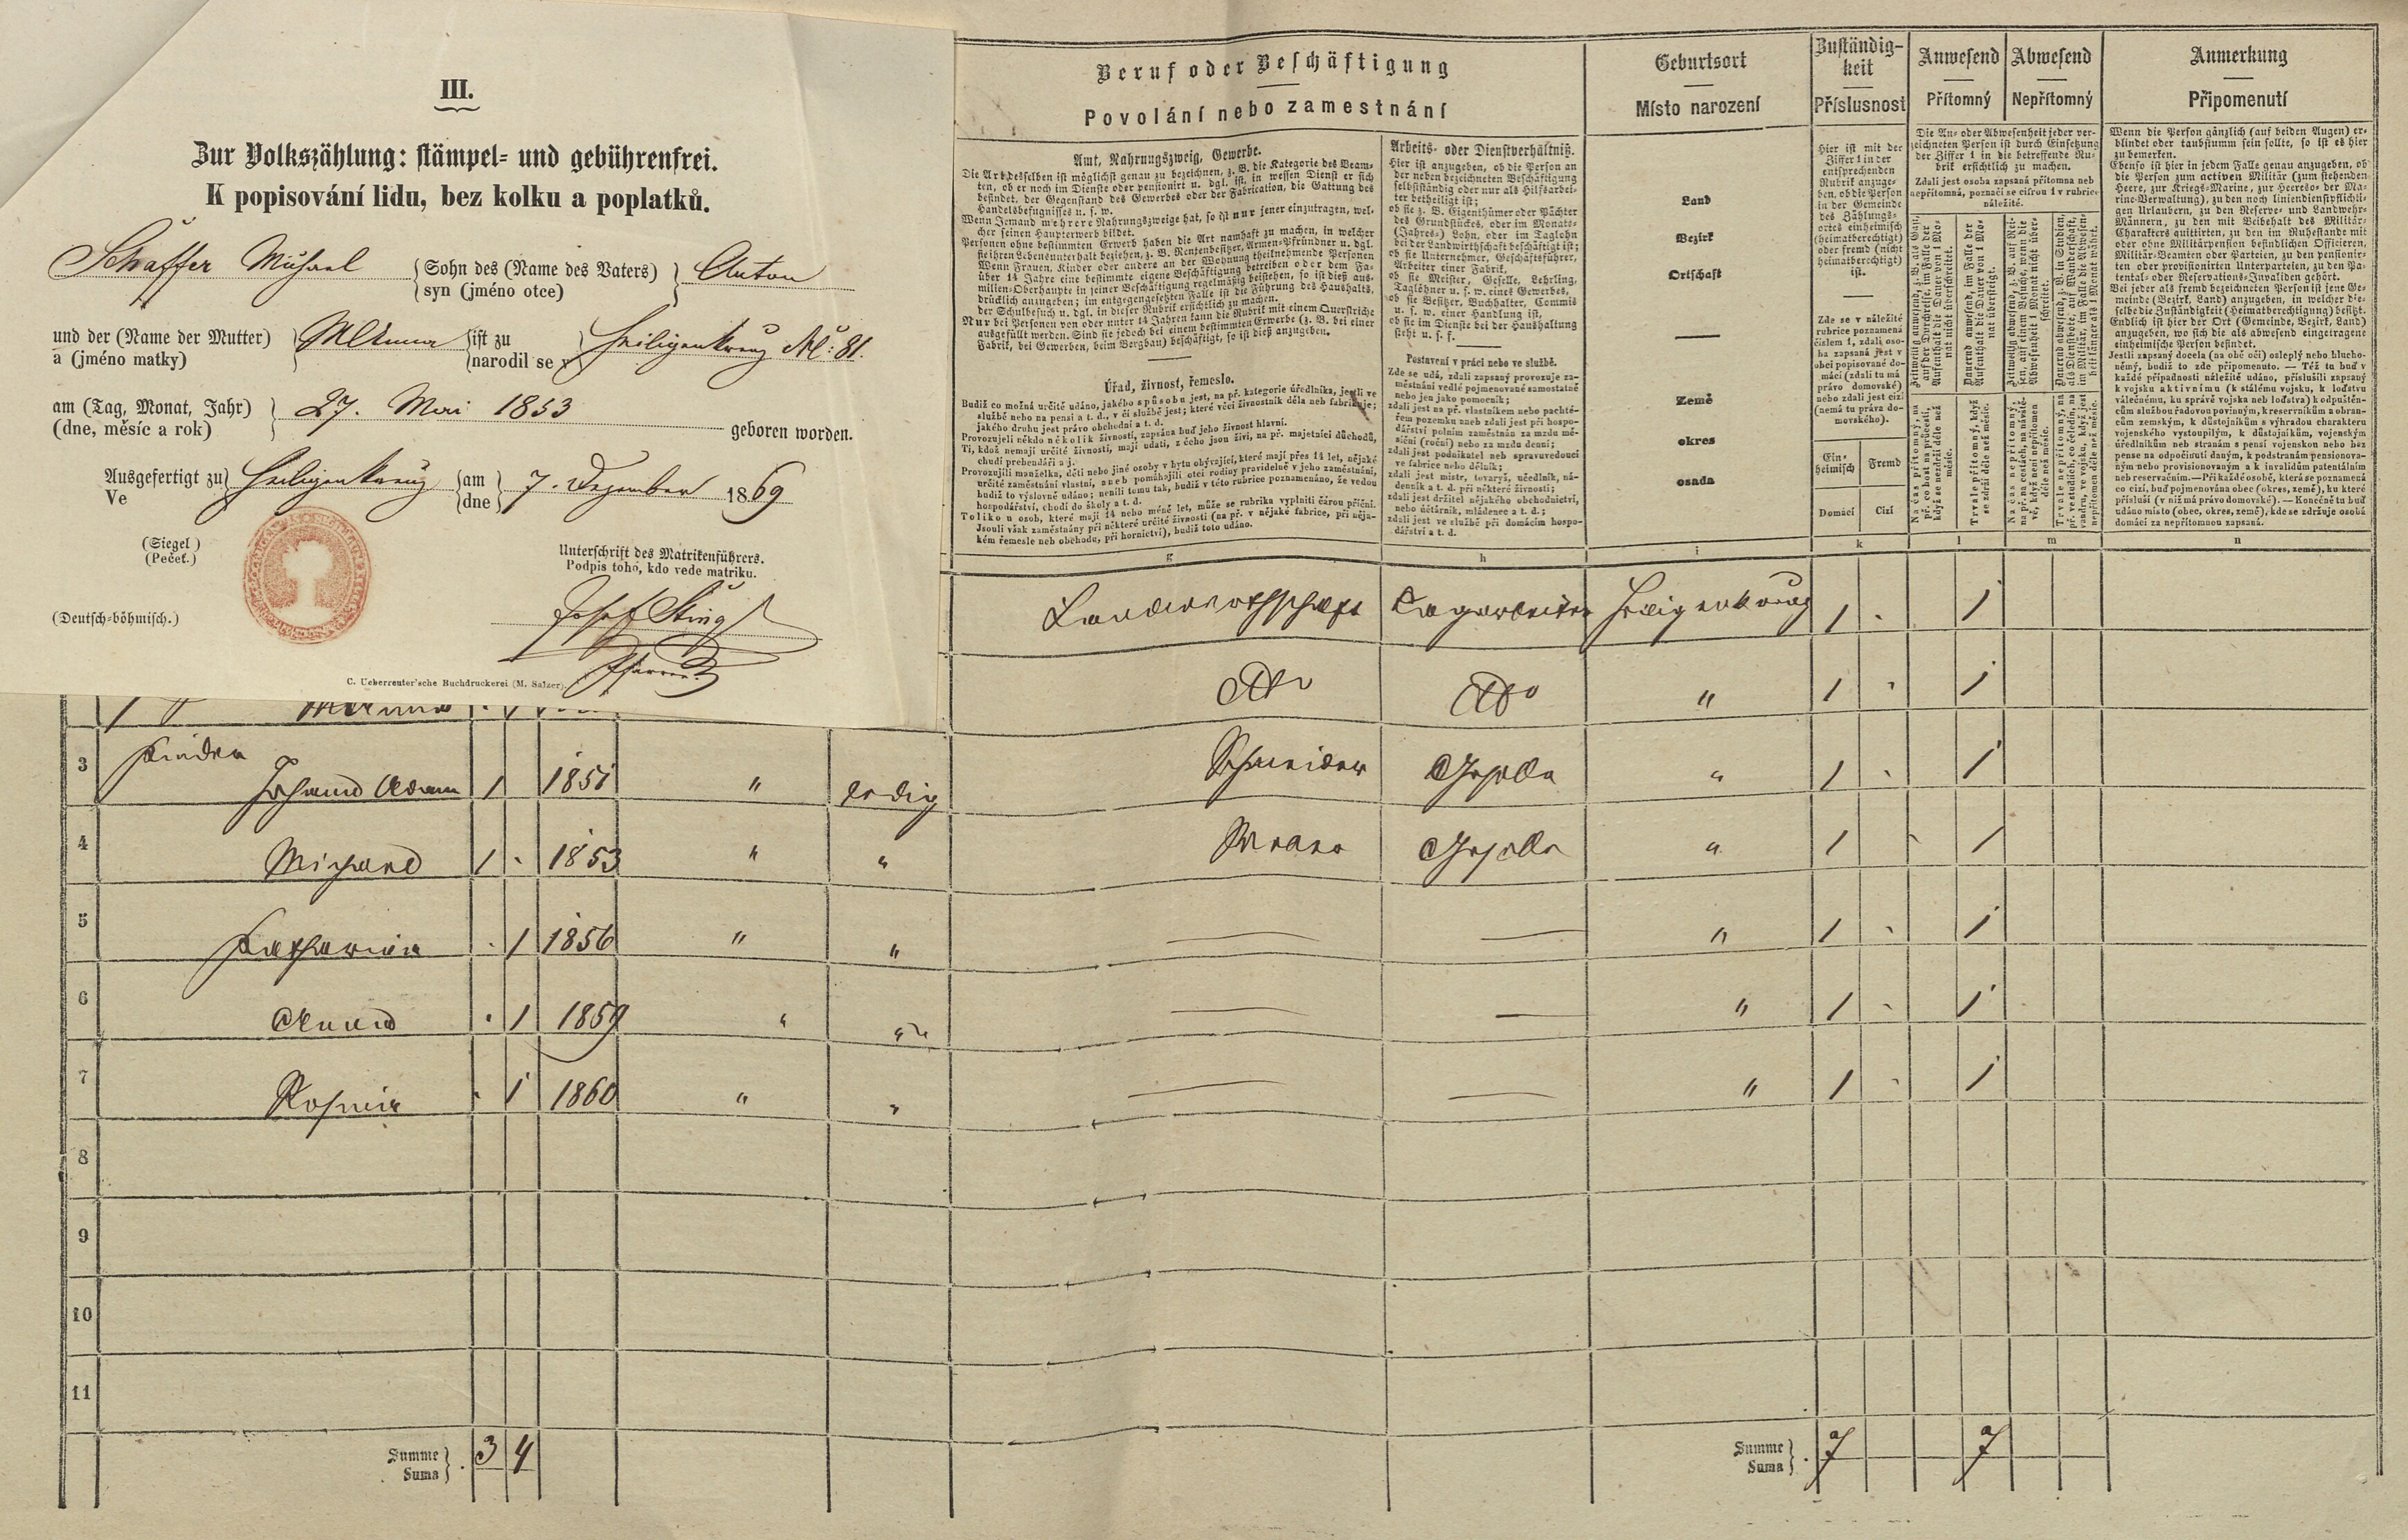 III.
Zur Volkszählung: stämpel- und gebührenfrei.
K popisování lidu, bez kolku a poplatků.
Schaffer Michael { Sohn des (Name des Vaters) } Anton
syn (jméno otce)
und der (Name der Mutter) } { ist zu } Heiligenkreuz № 81.
a (jméno matky) narodil se v
am (Tag, Monat, Jahr) } 27. Mai 1853
(dne, měsíc a rok) geboren worden.
Ausgefertigt zu } Heiligenkreuz { am } 7. Dezember 1869
Ve dne
(Siegel)
(Pečeť.)
Unterschrift des Matrikenführers.
Podpis toho, kdo vede matriku.
Josef
Pfarrer
(Deutsch-böhmisch.)
C. Ueberreuter'sche Buchdruckerei (M. Salzer).
Beruf oder Beschäftigung
Povolání nebo zamestnání
Amt, Nahrungszweig, Gewerbe.
Die Art desselben ist möglichst genau zu bezeichnen, z. B. die Kategorie des Beam-
ten, ob er noch im Dienste oder pensionirt u. dgl. ist, in wessen Dienst er sich
befindet, der Gegenstand des Gewerbes oder der Fabrication, die Gattung des
Handelsbefugnisses u. s. w.
Wenn Jemand mehrere Nahrungszweige hat, so ist nur jener einzutragen, wel-
cher seinen Haupterwerb bildet.
Personen ohne bestimmten Erwerb haben die Art namhaft zu machen, in welcher
sie ihren Lebensunterhalt beziehen, z. B. Rentenbesitzer, Armen-Pfründner u. dgl.
Wenn Frauen, Kinder oder andere an der Wohnung theilnehmende Personen
über 14 Jahre eine bestimmte eigene Beschäftigung betreiben oder dem Fa-
milien-Oberhaupte in seiner Beschäftigung regelmäßig beistehen, so ist dieß aus-
drücklich anzugeben; im entgegengesetzten Falle ist die Führung des Haushalts,
der Schulbesuch u. dgl. in dieser Rubrik ersichtlich zu machen.
Nur bei Personen von oder unter 14 Jahren kann die Rubrik mit einem Querstriche
ausgefüllt werden. Sind sie jedoch bei einem bestimmten Erwerbe (z. B. bei einer
Fabrik, bei Gewerben, beim Bergbau) beschäftigt, so ist dieß anzugeben.
Úřad, živnost, řemeslo.
Budiž co možná určitě udáno, jakého spůsobu jest, na př. kategorie úředlníka, jestli ve
službě nebo na pensi a t. d., v čí službě jest; které věci živnostník dělá neb fabrikuje;
jakého druhu jest právo obchodní a t. d.
Provozujeli někdo několik živností, zapsána buď jeho živnost hlavní.
Ti, kdož nemají určité živnosti, mají udati, z čeho jsou živi, na př. majetníci důchodů,
chudí prebendáři a j.
Provozujíli manželka, děti nebo jiné osoby v bytu obývající, které mají přes 14 let, nějaké
určité zaměstnání vlastní, aneb pomáhajíli otci rodiny pravidelně v jeho zaměstnání,
budiž to výslovně udáno; neníli tomu tak, budiž v této rubrice poznamenáno, že vedou
hospodářství, chodí do školy a t. d.
Toliko u osob, které mají 14 nebo méně let, může se rubrika vyplniti čárou příční.
Jsouli však zaměstnány při některé určité živnosti (na př. v nějaké fabrice, při něja-
kém řemesle neb obchodu, při hornictví), budiž toto udáno.
Arbeits- oder Dienstverhältniß.
Hier ist anzugeben, ob die Person an
der neben bezeichneten Beschäftigung
selbstständig oder nur als Hilfsarbei-
ter betheiligt ist;
ob sie z. B. Eigenthümer oder Pächter
des Grundstückes, oder im Monats-
(Jahres-) Lohn, oder im Taglohn
bei der Landwirthschaft beschäftigt ist;
ob sie Unternehmer, Geschäftsführer,
Arbeiter einer Fabrik,
ob sie Meister, Geselle, Lehrling,
Taglöhner u. s. w. eines Gewerbes,
ob sie Besitzer, Buchhalter, Commis
u. s. w. einer Handlung ist,
ob sie im Dienste bei der Haushaltung
steht u. s. f.
Postavení v práci nebo ve službě.
Zde se udá, zdali zapsaný provozuje za-
městnání vedlé pojmenované samostatně
nebo jen jako pomocník;
zdali jest na př. vlastníkem nebo pachté-
řem pozemku aneb zdali jest při hospo-
dářství polním zaměstnán za mzdu mě-
síční (roční) nebo za mzdu denní;
zdali jest podnikatel neb spravuvedoucí
ve fabrice nebo dělník;
zdali jest mistr, tovaryš, učedlník, ná-
denník a t. d. při některé živnosti;
zdali jest držitel nějakého obchodnictví,
nebo účtárník, mládenec a t. d.;
zdali jest ve službě při domácím hospo-
dářství a t. d.
Geburtsort
Místo narození
Land
Bezirk
Ortschaft
Země
okres
osada
Zuständig-
keit
Příslusnost
Hier ist mit der
Ziffer 1 in der
entsprechenden
Rubrik anzuge-
ben, ob die Person
in der Gemeinde
des Zählungs-
ortes einheimisch
(heimatberechtigt)
oder fremd (nicht
heimatberechtigt)
ist.
Zde se v náležité
rubrice poznamená
číslem 1, zdali oso-
ba zapsaná jest v
obci popisované do-
mácí (zdali tu má
právo domovské)
nebo zdali jest cizí
(nemá tu práva do-
movského).
Ein-
heimisch
Fremd
Domácí
Cizí
Anwesend
Přítomný
Abwesend
Nepřítomný
Die An- oder Abwesenheit jeder ver-
zeichneten Person ist durch Einsetzung
der Ziffer 1 in die betreffende Ru-
brik ersichtlich zu machen.
Zdali jest osoba zapsaná přítomna neb
nepřítomná, poznačí se cifrou 1 v rubrice
náležité.
Anmerkung
Připomenutí
Wenn die Person gänzlich (auf beiden Augen) er-
blindet oder taubstumm sein sollte, so ist es hier
zu bemerken.
Ebenso ist hier in jedem Falle genau anzugeben, ob
die Person zum activen Militär (zum stehenden
Heere, zur Kriegs-Marine, zur Heeres- oder Ma-
rine-Verwaltung), zu den noch liniendienstpflichti-
gen Urlaubern, zu den Reserve- und Landwehr-
Männern, zu den mit Beibehalt des Militär-
Charakters quittirten, zu den im Ruhestande mit
oder ohne Militärpension befindlichen Officieren,
Militär-Beamten oder Parteien, zu den pensionir-
ten oder provisionirten Unterparteien, zu den Pa-
tental- oder Reservations-Invaliden gehört.
Bei jeder als fremd bezeichneten Person ist jene Ge-
meinde (Bezirk, Land) anzugeben, in welcher die-
selbe die Zuständigkeit (Heimatberechtigung) besitzt.
Endlich ist hier der Ort (Gemeinde, Bezirk, Land)
anzugeben, wo sich die als abwesend eingetragene
einheimische Person befindet.
Jestli zapsaný docela (na obě oči) osleplý nebo hlucho-
němý, budiž to zde připomenuto.
g h i k l m n
Landwirthschaft Tagarbeiter Heiligenkreuz 1 1
dto dto " 1 1
3 Kinder
Johann Adam 1 1851 " ledig Schneider Geselle " 1 1
4 Michael 1 1853 " " Weber Geselle " 1 1
5 Katharina 1 1856 " " " 1 1
6 Anna 1 1859 " " " 1 1
7 Rosina 1 1860 " " " 1 1
8
9
10
11
Summe
Suma } 3 4
Summe
Suma } 7 7